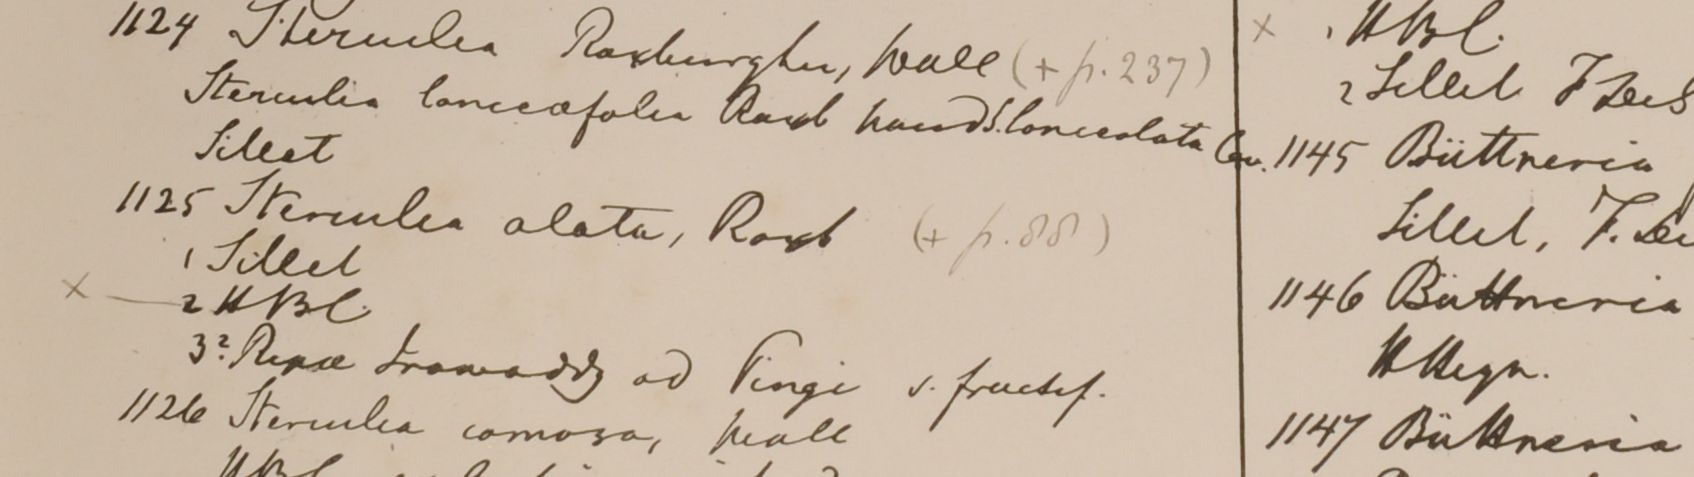 1124 Sterculia Roxburghii, Wall (+ p. 237)
Sterculia lanceæfolia Roxb haud S. lanceolata Cav.
Sillet
1125 Sterculia alata, Roxb (+ p. 88)
1 Sillet
x — 2 HBC.
3? Ripæ Irawaddy ad Pingi s. fructif.
1126 Sterculia comosa, Wall
HBC
x 1 HBC.
2 Sillet F
1145 Büttneria
Sillet, F. De
1146 Büttneria
HHeyn.
1147 Büttneria